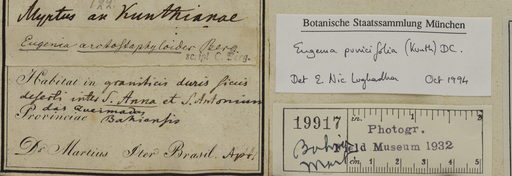 Myrtus an Kunthianae
Eugenia arctostaphyloides Berg
script. C. Berg.
Habitat in graniticis duris siccis
deserti inter S. Anna et S. Antonium
das Queimadas
Provinciae Bahiensis
Dr. Martius Iter Brasil. Apr.
Botanische Staatssammlung München
Eugenia punicifolia (Kunth) DC.
Det E. Nic Lughadha Oct 1994
in. 1 2
19917
Photogr.
Field Museum 1932
cm. 1 2 3 4 5